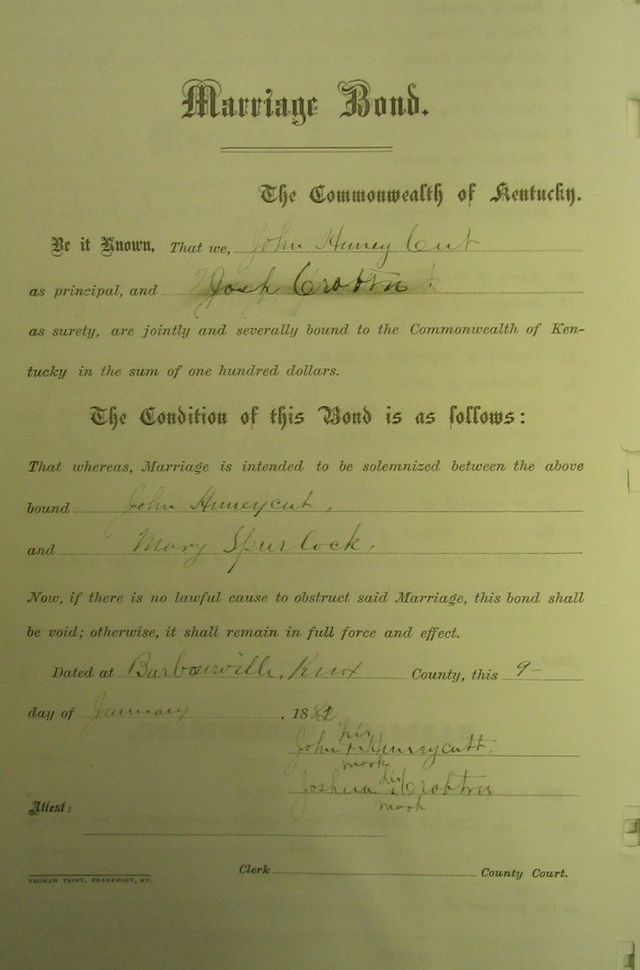 Marriage Bond.
The Commonwealth of Kentucky.
Be it Known, That we, John Huneycut
as principal, and Josh Crobtre
as surety, are jointly and severally bound to the Commonwealth of Ken-
tucky in the sum of one hundred dollars.
The Condition of this Bond is as follows:
That whereas, Marriage is intended to be solemnized between the above
bound John Huneycut,
and Mary Spurlock.
Now, if there is no lawful cause to obstruct said Marriage, this bond shall
be void; otherwise, it shall remain in full force and effect.
Dated at Barbourville, Knox County, this 9-
day of January, 18
his
John + Huneycutt.
mark
his
Joshua Crobtre
mark
Attest:
Clerk County Court.
YEOMAN PRINT, FRANKFORT, KY.